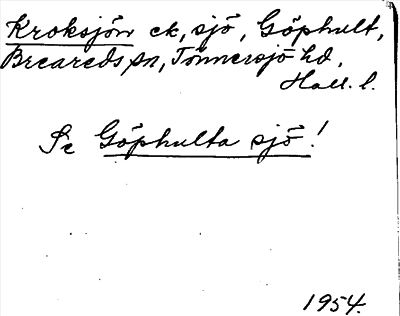 Kroksjön ek, sjö, Göphult,
Breareds sn, Tönnersjö hd,
Hall. l.
Se Göphulta sjö!
1954.